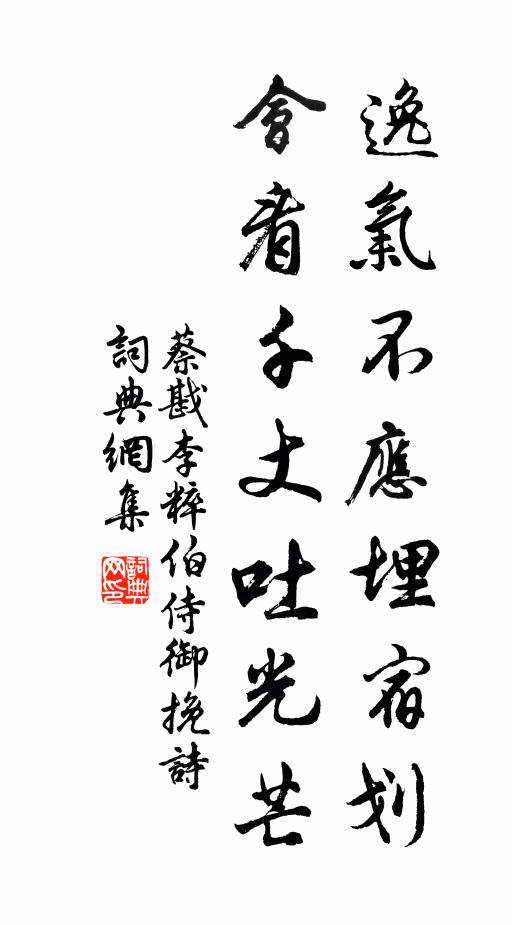 逸氣不應埋宿划
會看千丈吐光芒
蔡戡李粹伯侍御挽詩
詞典網集
詞典网印